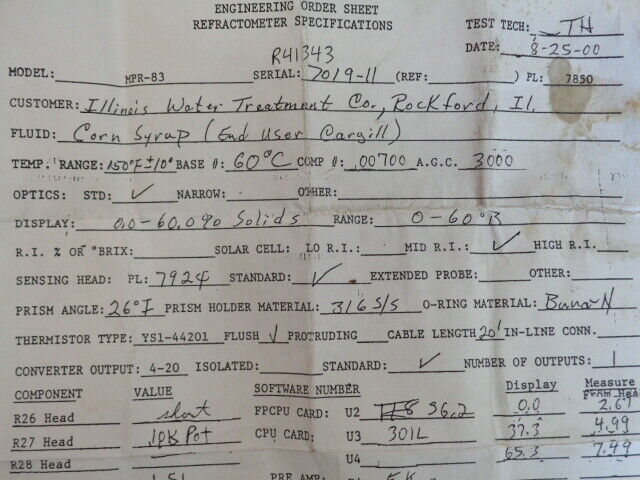 ENGINEERING ORDER SHEET
REFRACTOMETER SPECIFICATIONS
TEST TECH: TH
R41343
DATE: 8-25-00
MODEL: MPR-83 SERIAL: 7019-11 (REF: ) PL: 7850
CUSTOMER: Illinois Water Treatment Co., Rockford, Il.
FLUID: Corn Syrup (End User Cargill)
TEMP. RANGE: 150°F±10° BASE #: 60°C COMP #: .00700 A.G.C. 3000
OPTICS: STD: ✓ NARROW: OTHER:
DISPLAY: 0.0-60.0% Solids RANGE: 0-60°B
R.I. % OR °BRIX: SOLAR CELL: LO R.I.: MID R.I.: ✓ HIGH R.I.
SENSING HEAD: PL: 7924 STANDARD: ✓ EXTENDED PROBE: OTHER:
PRISM ANGLE: 26°I PRISM HOLDER MATERIAL: 316 S/S O-RING MATERIAL: Buna-N
THERMISTOR TYPE: YS1-44201 FLUSH ✓ PROTRUDING CABLE LENGTH 20' IN-LINE CONN.
CONVERTER OUTPUT: 4-20 ISOLATED: STANDARD: ✓ NUMBER OF OUTPUTS: 1
COMPONENT VALUE SOFTWARE NUMBER Display Measure
R26 Head short FPCPU CARD: U2 S6.2 0.0 2.67
R27 Head 10K Pot CPU CARD: U3 301L 37.3 4.99
R28 Head U4 65.3 7.49
PRE AMP: